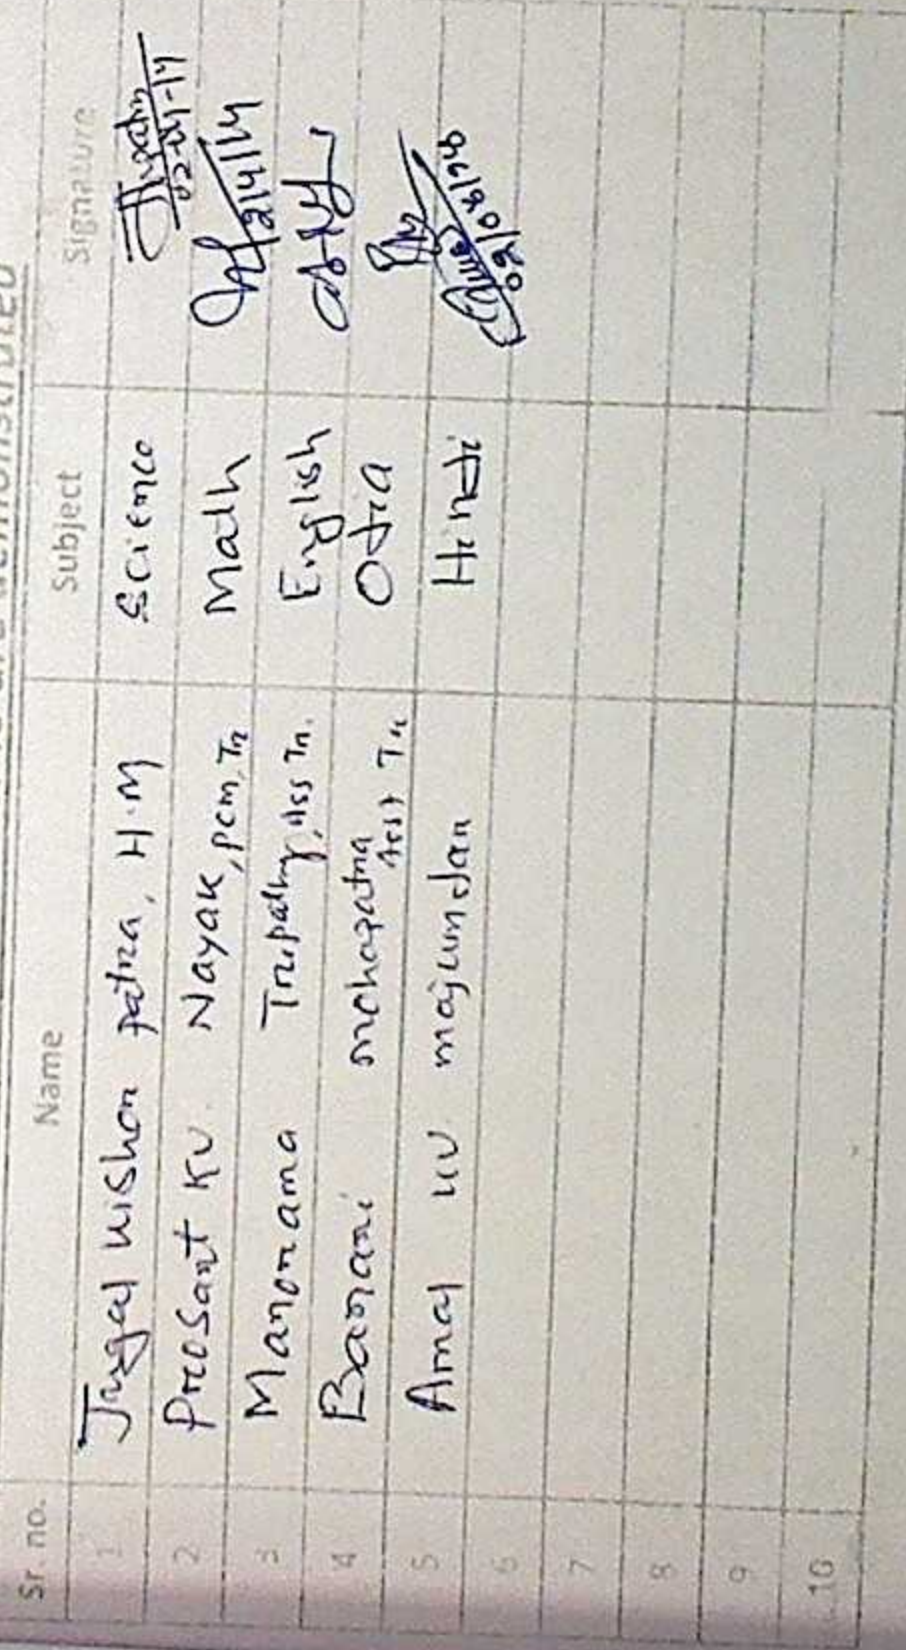 demonstrated
Sr. no. Name Subject Signature
1 Jugal Kishor patra, H.M Science 02-04-14
2 Prosant Ku. Nayak, pcm, Tr Math 2/4/14
3 Manorama Tripathy, Ass Tr. English
4 Banani mohapatra Asst Tr Odia
5 Amal Ku majumdar Hindi
6
7
8
9
10